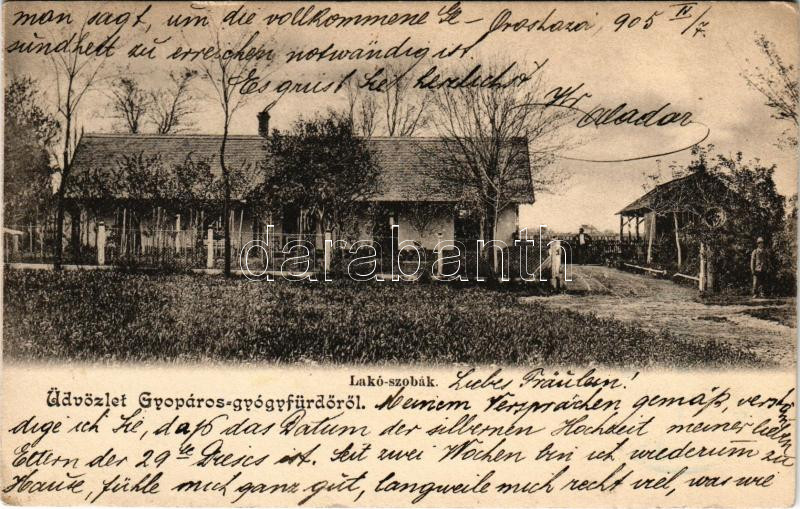 Lakó-szobák.
Üdvözlet Gyopáros-gyógyfürdőről.
Liebes Fräulein!
Meinem Verzprächen gemäß, verstän
dige ich Sie, daß das Datum der silbernen Hochzeit meiner lieben
Eltern der 29te Dieses ist. Seit zwei Wochen bin ich wiederum zu
Hause, fühle mich ganz gut, langweile mich recht viel, was wie
man sagt, um die vollkommene Ge-
sundheit zu erreichen notwändig ist.
Es grüst Sie herzlichst
Ihr
Aladar
Orosháza, 905 IV/7.
darabanth